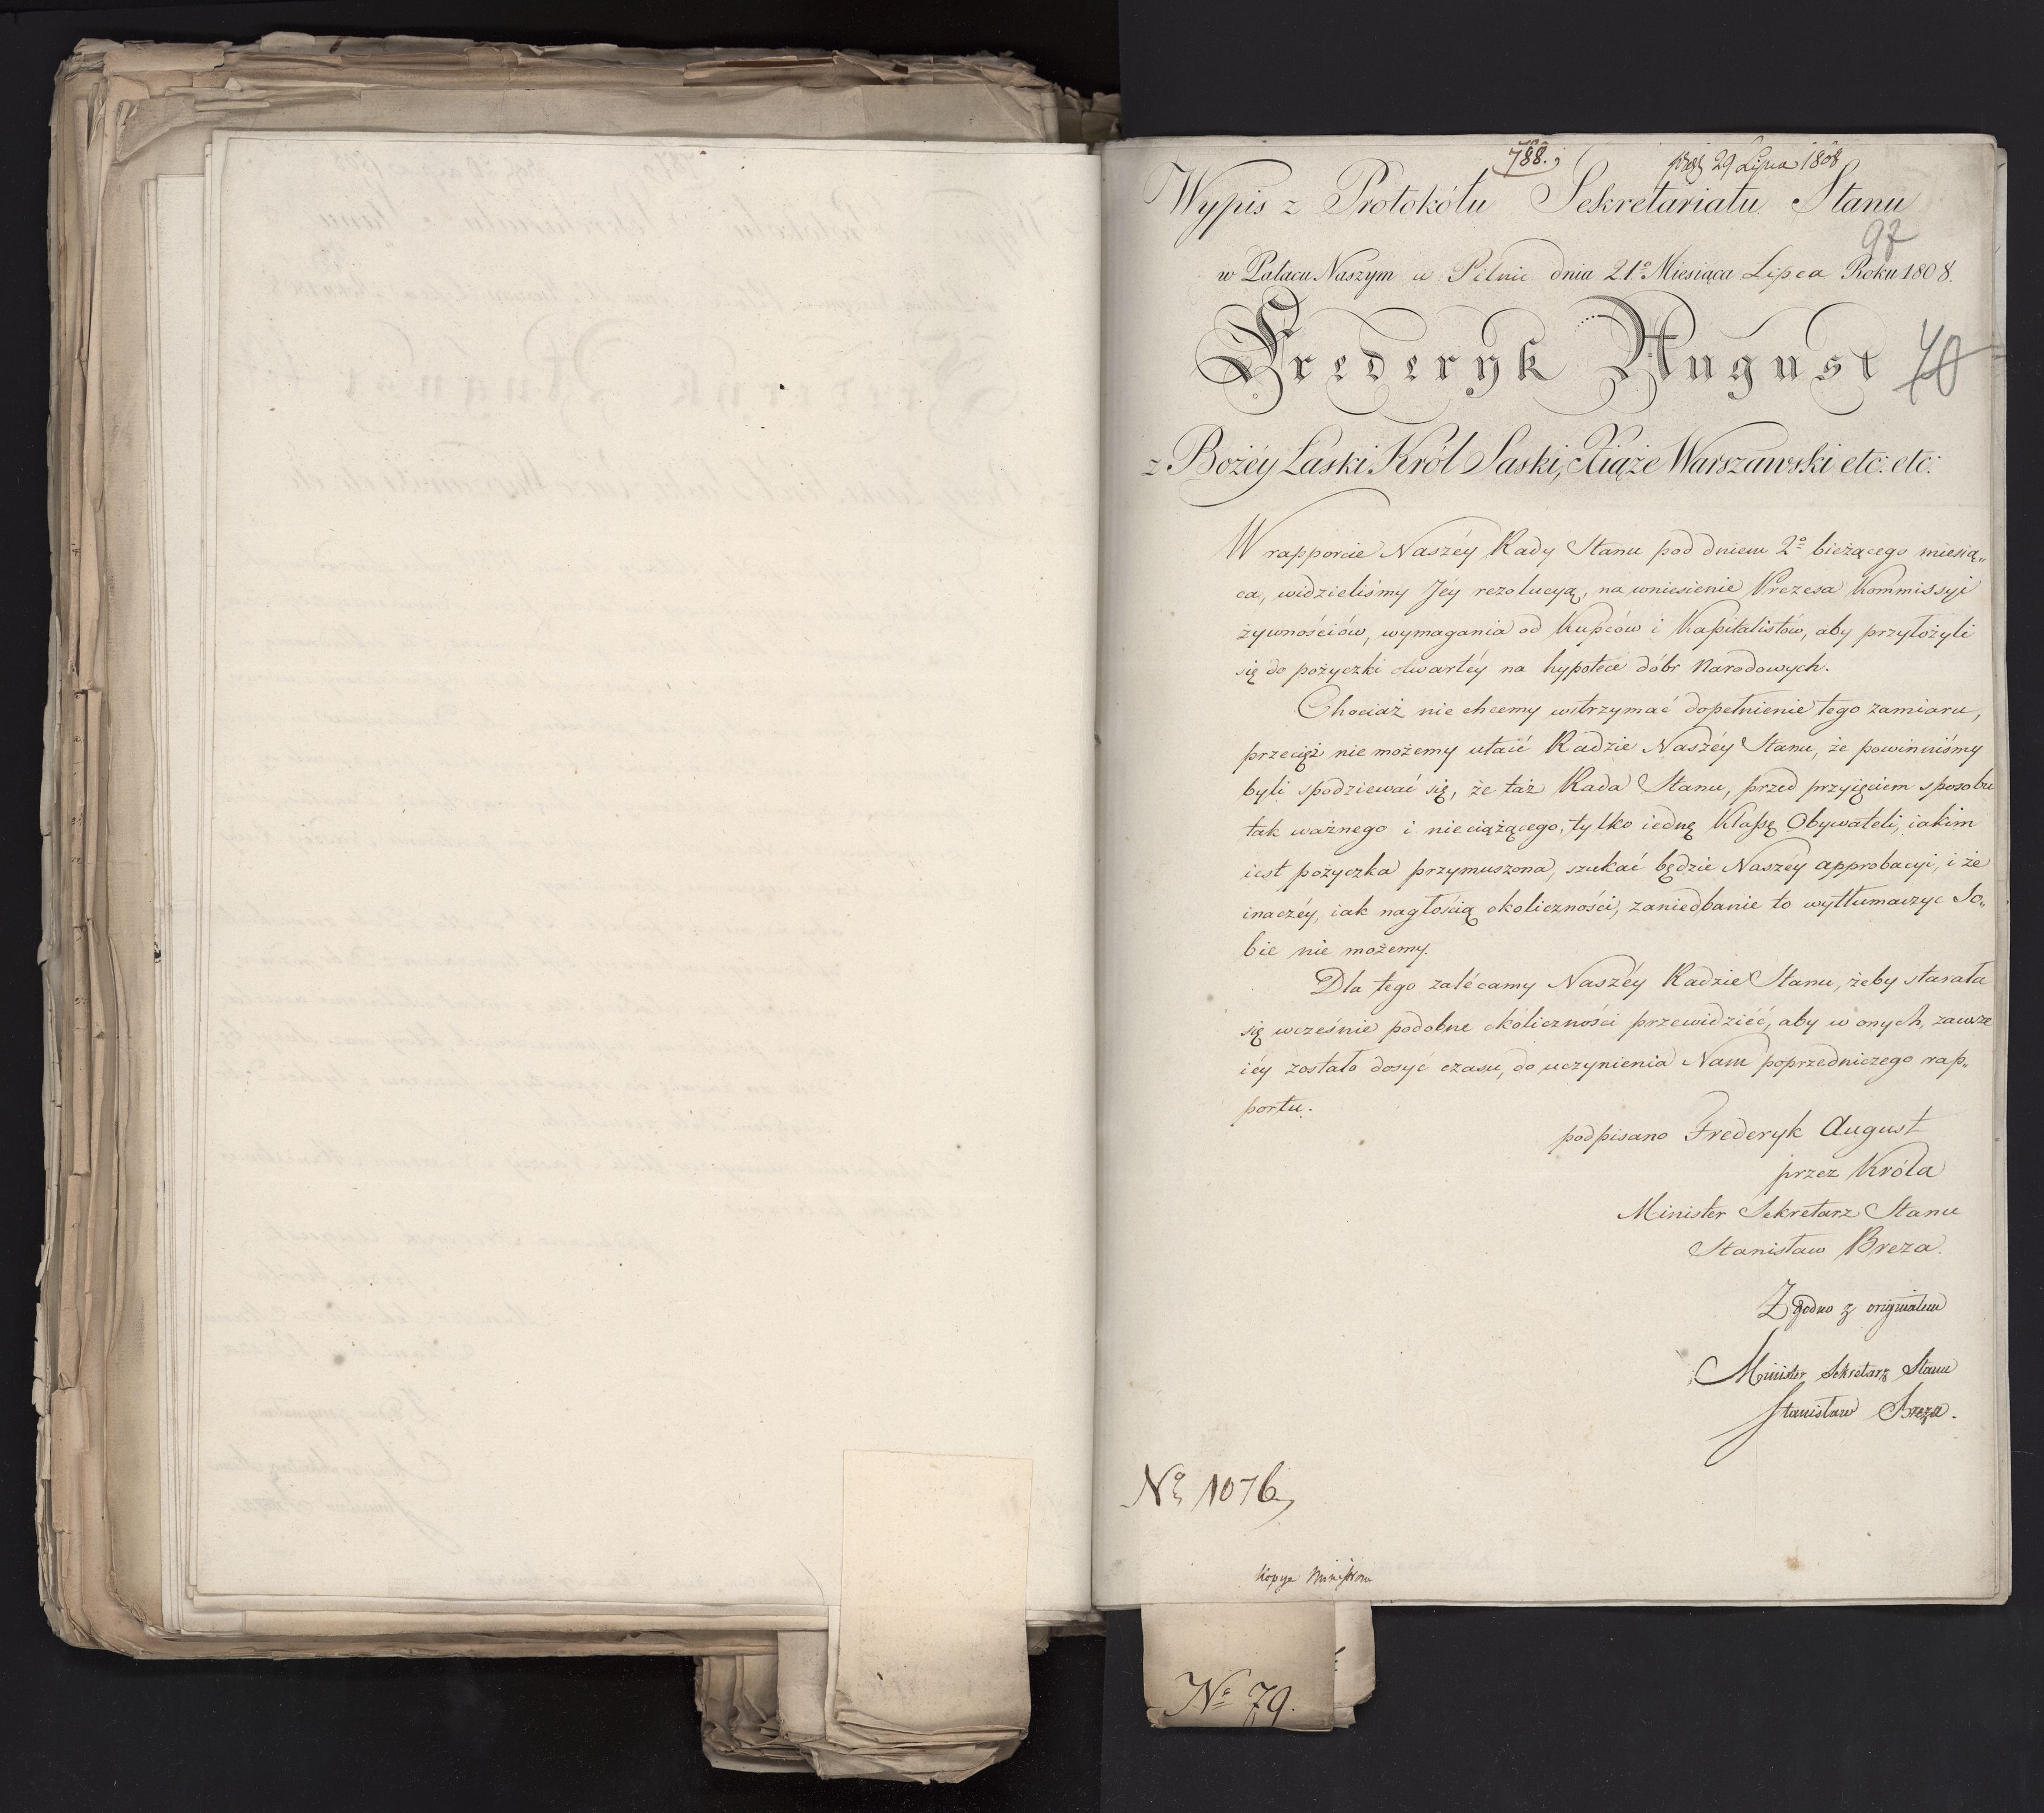 788.
29 Lipca 1808
Wypis z Protokółu Sekretariatu Stanu
97
w Pałacu Naszym w Pilnic dnia 21º Miesiąca Lipca Roku 1808.
Frederyk August
40
z Bożéy Łaski Król Saski, Xiąże Warszawski etc: etc:
W rapporcie Naszéy Rady Stanu pod dniem 2º bieżącego miesią„
ca, widzieliśmy Jéy rezolucyą, na wniesienie Prezesa Kommissyi
żywnościów, wymagania od Kupców i Kapitalistów, aby przyłożyli
się do pożyczki otwartéy na hypotece dóbr Narodowych.
Chociaż nie chcemy wstrzymać dopełnienie tego zamiaru,
przecięż nie możemy utaić Radzie Naszéy Stanu, że powinniśmy
byli spodziewać się, że taż Rada Stanu, przed przyięciem sposobu
tak ważnego i nieciążącego, tylko iednę Klassę Obywateli, iakim
iest pożyczka przymuszona, szukać będzie Naszéy approbacyi, i że
inaczéy, iak nagłością okoliczności, zaniedbanie to wytłumaczyc So„
bie nie możemy.
Dla tego zalécamy Naszéy Radzie Stanu, żeby starała
się wcześnie podobne okoliczności przewidziéć, aby w onych, zawsze
iéy zostało dosyć czasu, do uczynienia Nam poprzedniczego rap„
portu.
podpisano Frederyk August
przez Króla
Minister Sekretarz Stanu
Stanisław Breza.
Zgodno z originałem
Minister Sekretarz Stanu
Stanisław Breza.
Nº 1076
Kopye Ministrom
Nº 79.